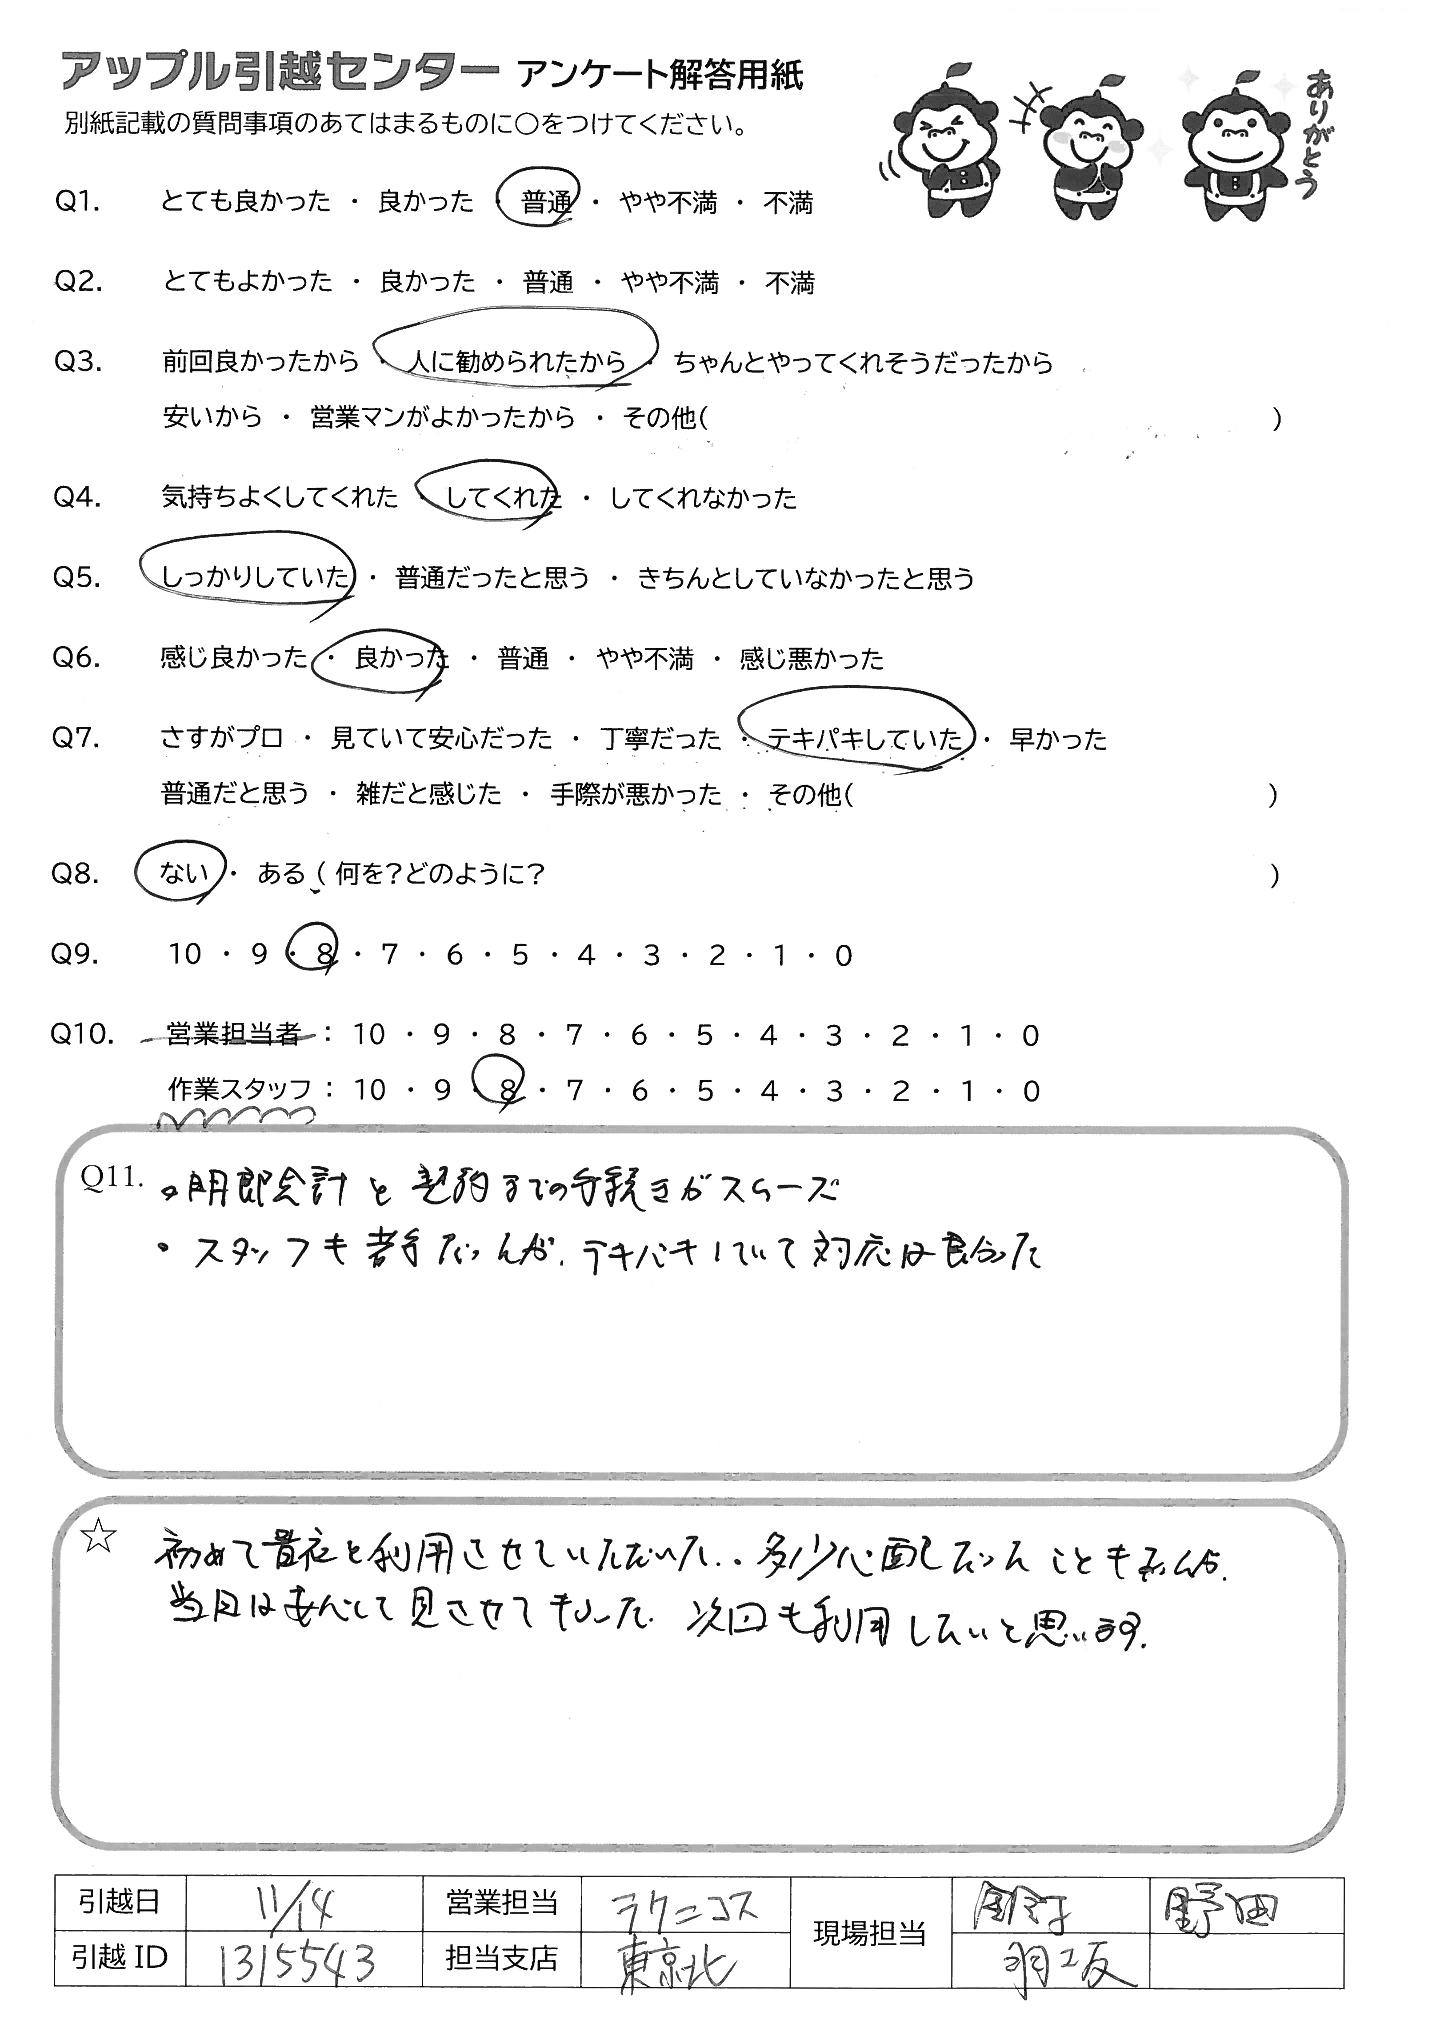 アップル引越センター アンケート解答用紙
別紙記載の質問事項のあてはまるものに○をつけてください。
ありがとう
Q1. とても良かった ・ 良かった ・ 普通 ・ やや不満 ・ 不満
Q2. とてもよかった ・ 良かった ・ 普通 ・ やや不満 ・ 不満
Q3. 前回良かったから ・ 人に勧められたから ・ ちゃんとやってくれそうだったから
安いから ・ 営業マンがよかったから ・ その他( )
Q4. 気持ちよくしてくれた ・ してくれた ・ してくれなかった
Q5. しっかりしていた ・ 普通だったと思う ・ きちんとしていなかったと思う
Q6. 感じ良かった ・ 良かった ・ 普通 ・ やや不満 ・ 感じ悪かった
Q7. さすがプロ ・ 見ていて安心だった ・ 丁寧だった ・ テキパキしていた ・ 早かった
普通だと思う ・ 雑だと感じた ・ 手際が悪かった ・ その他( )
Q8. ない ・ ある ( 何を?どのように? )
Q9. 10 ・ 9 ・ 8 ・ 7 ・ 6 ・ 5 ・ 4 ・ 3 ・ 2 ・ 1 ・ 0
Q10. 営業担当者 : 10 ・ 9 ・ 8 ・ 7 ・ 6 ・ 5 ・ 4 ・ 3 ・ 2 ・ 1 ・ 0
作業スタッフ : 10 ・ 9 ・ 8 ・ 7 ・ 6 ・ 5 ・ 4 ・ 3 ・ 2 ・ 1 ・ 0
Q11. 。明朗会計と契約までの手続きがスムーズ
・スタッフも若手だったが、テキパキしていて対応は良かった
☆ 初めて貴社を利用させていただいた。多少心配だったこともあったが、
当日は安心して見させてもらった。次回も利用したいと思います。
引越日 11/14 営業担当 ラクニコス 現場担当 野田
引越 ID 1315543 担当支店 東京北 羽坂